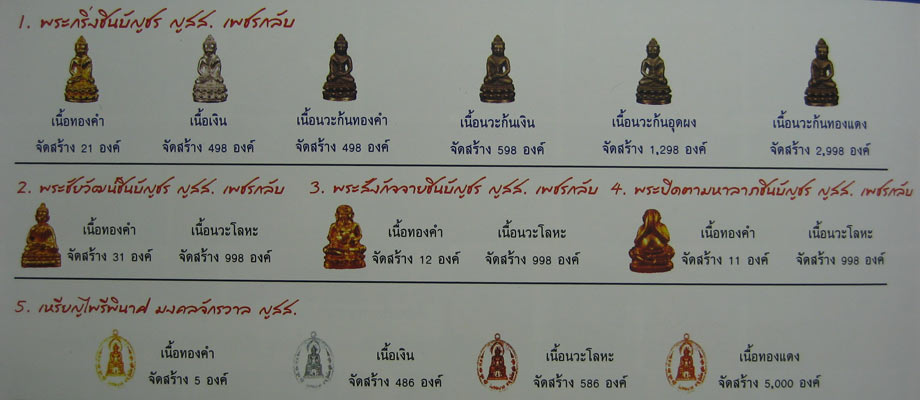 1. พระกริ่งชินบัญชร ญสส. เพชรกลับ
เนื้อทองคำ เนื้อเงิน เนื้อนวะก้นทองคำ เนื้อนวะก้นเงิน เนื้อนวะก้นอุดผง เนื้อนวะก้นทองแดง
จัดสร้าง 21 องค์ จัดสร้าง 498 องค์ จัดสร้าง 498 องค์ จัดสร้าง 598 องค์ จัดสร้าง 1,298 องค์ จัดสร้าง 2,998 องค์
2. พระชัยวัฒน์ชินบัญชร ญสส. เพชรกลับ 3. พระสังกัจจายชินบัญชร ญสส. เพชรกลับ 4. พระปิดตามหาลาภชินบัญชร ญสส. เพชรกลับ
เนื้อทองคำ เนื้อนวะโลหะ เนื้อทองคำ เนื้อนวะโลหะ เนื้อทองคำ เนื้อนวะโลหะ
จัดสร้าง 31 องค์ จัดสร้าง 998 องค์ จัดสร้าง 12 องค์ จัดสร้าง 998 องค์ จัดสร้าง 11 องค์ จัดสร้าง 998 องค์
5. เหรียญไพรีพินาศ มงคลจักรวาล ญสส.
เนื้อทองคำ เนื้อเงิน เนื้อนวะโลหะ เนื้อทองแดง
จัดสร้าง 5 องค์ จัดสร้าง 486 องค์ จัดสร้าง 586 องค์ จัดสร้าง 5,000 องค์